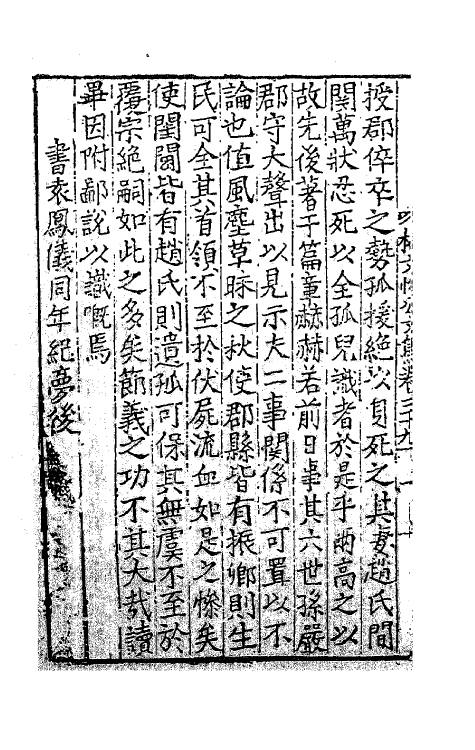 授郡倅卒之勢孤援絶以身死之其妻趙氏間
関萬狀忍死以全孤兒識者於是乎兩高之以
故先後著于篇章赫赫若前日事其六世孫嚴
郡守大聲出以見示夫二事關係不可置以不
論也值風塵草昧之秋使郡縣皆有振鄉則生
民可全其首領不至於伏屍流血如是之慘矣
使閨閫皆有趙氏則遺孤可保其無虞不至於
覆宗絶嗣如此之多矣節義之功不其大哉讀
畢因附鄙說以識嘅焉
書袁鳳儀同年紀夢後